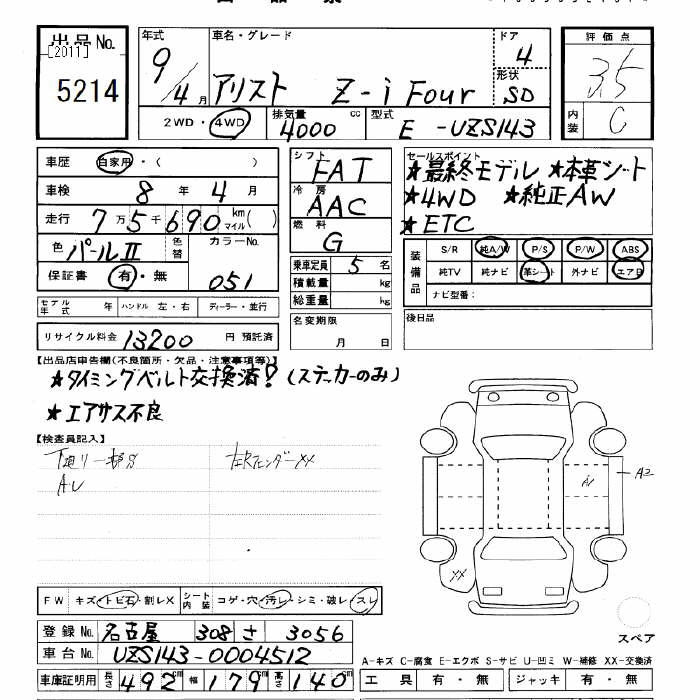 出品票
出品No. [2011] 5214
年式 9/4月 車名・グレード アリスト Z-i Four ドア 4 形状 SD
2WD・4WD 排気量 4000 cc 型式 E-UZS143
評価点 3.5
内装 C
車歴 自家用・( )
車検 8年 4月
走行 7万5千690 km マイル( )
色 パールⅡ 色替 カラーNo. 051
保証書 有・無
モデル年式 年 ハンドル 左・右 ディーラー・並行
リサイクル料金 13200 円 預託済
シフト FAT
冷房 AAC
燃料 G
乗車定員 5名
積載量 kg
総重量 kg
名変期限 月 日
セールスポイント
★最終モデル ★本革シート
★4WD ★純正AW
★ETC
装備品 S/R 純A/W P/S P/W ABS
純TV 純ナビ 革シート 外ナビ エアB
ナビ型番:
後日品
【出品店申告欄(不良箇所・欠品・注意事項等)】
★タイミングベルト交換済?(ステッカーのみ)
★エアサス不良
【検査員記入】
AU
XX
A2
FW キズ・トビ石・割レX シート内装 コゲ・穴・汚レ・シミ・破レ・スレ
スペア
登録No. 名古屋 308 さ 3056
車台No. UZS143-0004512
車庫証明用 長さ 492cm 幅 179cm 高さ 140cm
A-キズ C-腐食 E-エクボ S-サビ U-凹ミ W-補修 XX-交換済
工具 有・無 ジャッキ 有・無